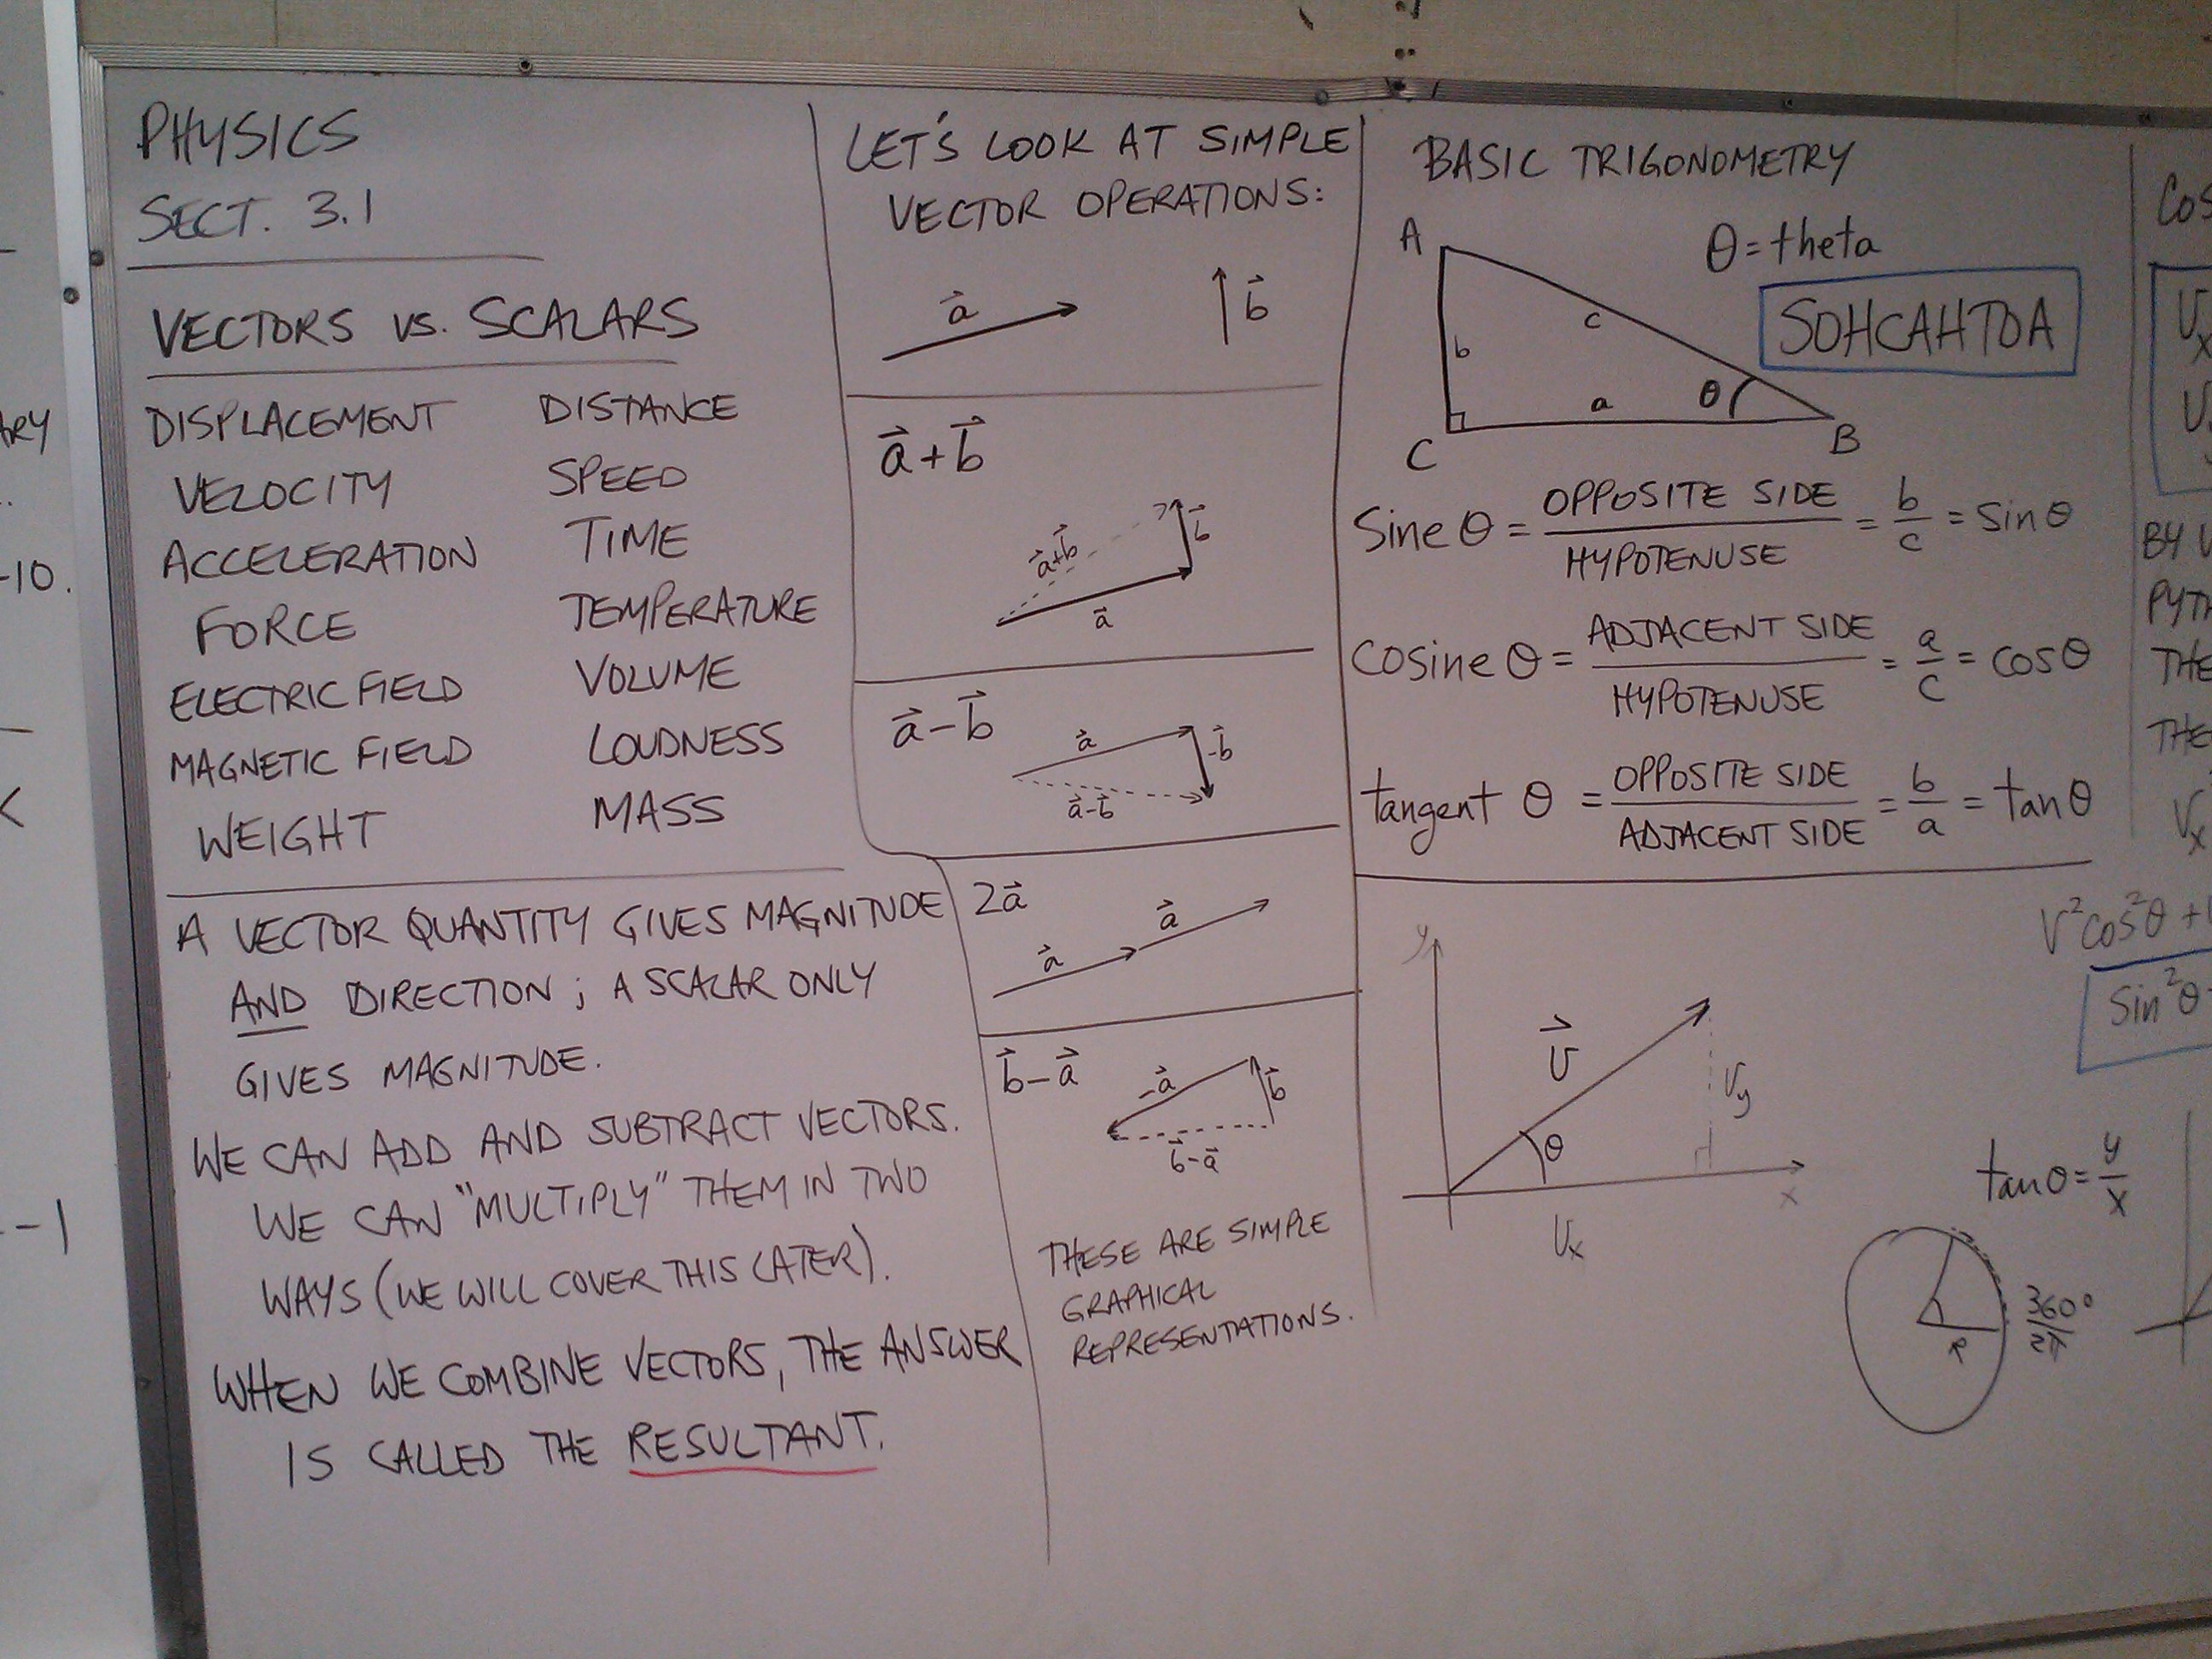 PHYSICS
SECT. 3.1
VECTORS vs. SCALARS
DISPLACEMENT DISTANCE
VELOCITY SPEED
ACCELERATION TIME
FORCE TEMPERATURE
ELECTRIC FIELD VOLUME
MAGNETIC FIELD LOUDNESS
WEIGHT MASS
A VECTOR QUANTITY GIVES MAGNITUDE
AND DIRECTION; A SCALAR ONLY
GIVES MAGNITUDE.
WE CAN ADD AND SUBTRACT VECTORS.
WE CAN "MULTIPLY" THEM IN TWO
WAYS (WE WILL COVER THIS LATER).
WHEN WE COMBINE VECTORS, THE ANSWER
IS CALLED THE RESULTANT.
LET'S LOOK AT SIMPLE
VECTOR OPERATIONS:
a⃗ b⃗
a⃗+b⃗
a⃗+b⃗ b⃗
a⃗
a⃗-b⃗
a⃗ -b⃗
a⃗-b⃗
2a⃗
a⃗ a⃗
b⃗-a⃗
-a⃗ b⃗
b⃗-a⃗
THESE ARE SIMPLE
GRAPHICAL
REPRESENTATIONS.
BASIC TRIGONOMETRY
A θ=theta
SOHCAHTOA
c
b
a θ
C B
Sine θ = OPPOSITE SIDE / HYPOTENUSE = b/c = sin θ
Cosine θ = ADJACENT SIDE / HYPOTENUSE = a/c = cos θ
tangent θ = OPPOSITE SIDE / ADJACENT SIDE = b/a = tan θ
y
V⃗
Vy
θ
x
Vx
Cos
Vx
BY
PYTH
THE
THE
Vx
V²cos²θ +
Sin²θ
tanθ = y/x
360°/2π
R
ARY
-10.
-1